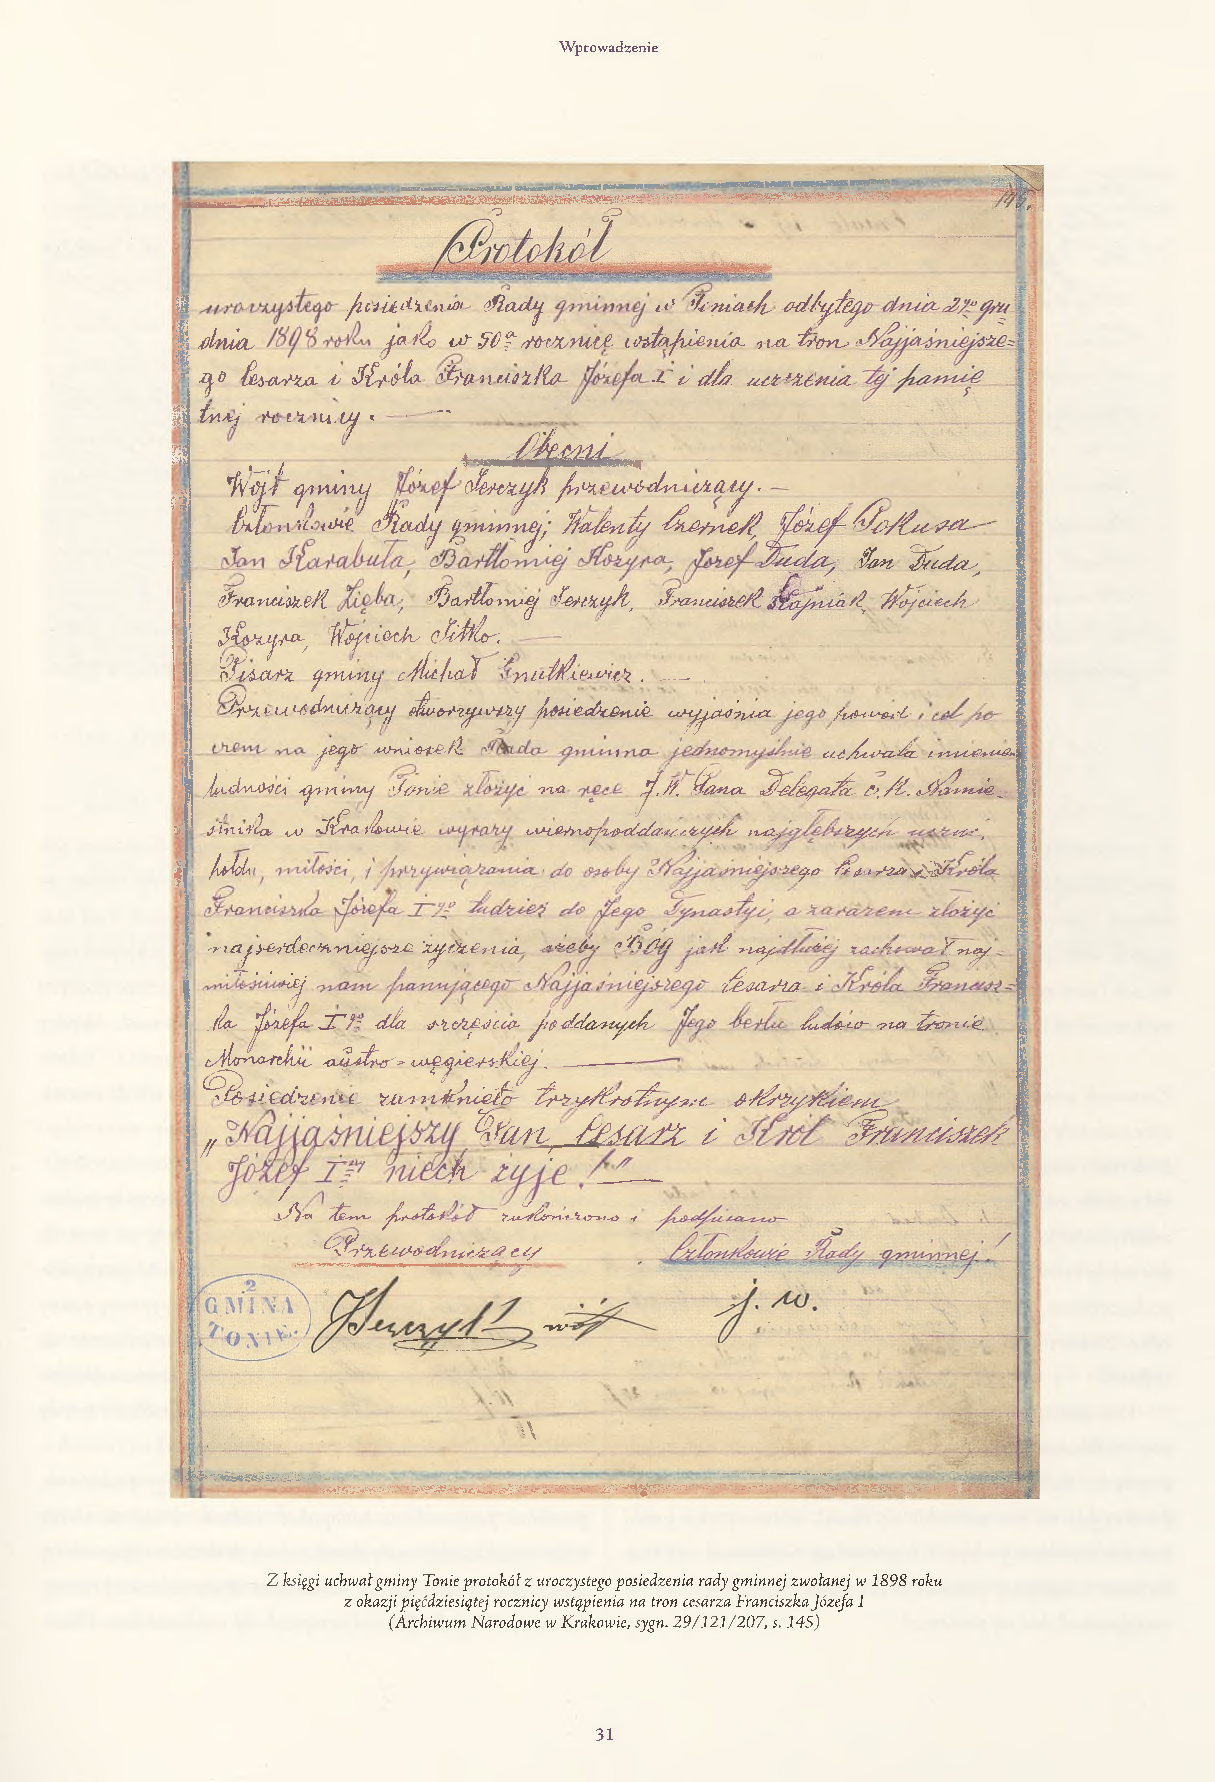 Wprowadzenie
145.
Protokół
uroczystego posiedzenia Rady gminnej w Toniach odbytego dnia 2go gru
dnia 1898 roku jako w 50a rocznicę wstąpienia na tron Najjaśniejsze=
go Cesarza i Króla Franciszka Józefa I i dla uczczenia tej pamię
tnej rocznicy. —
Obecni
Wójt gminy Józef Jerczyk przewodniczący. —
Członkowie Rady gminnej; Walenty Czernek, Józef Pokusa
Jan Karabuła, Bartłomiej Kozyra, Józef Duda, Jan Duda,
Franciszek Zięba, Bartłomiej Jerczyk, Franciszek Wojciech
Kozyra, Wojciech Sitko. —
Pisarz gminy Michał Gnutkiewicz. —
Przewodniczący otworzywszy posiedzenie wyjaśnia jego powód i cel po
czem na jego wniosek Rada gminna jednomyślnie uchwala imieniem
ludności gminy Tonie złożyć na ręce J.W. Pana Delegata c.k. Namie
stnika w Krakowie wyrazy wiernopoddańczych najgłębszych uczuć,
hołdu, miłości, i przywiązania do osoby Najjaśniejszego Cesarza i Króla
Franciszka Józefa Igo tudzież do Jego Dynastyi, a zarazem złożyć
najserdeczniejsze życzenia, ażeby Bóg jak najdłużej zachował naj=
miłościwiej nam panującego Najjaśniejszego Cesarza i Króla Francisz=
ka Józefa Igo dla szczęścia poddanych Jego berłu ludów na tronie
Monarchii austro=węgierskiej. —
Posiedzenie zamknięto trzykrotnym okrzykiem
„Najjaśniejszy Pan, Cesarz i Król Franciszek
Józef Iszy niech żyje!" —
Na tem protokół zakończono i podpisano
Przewodniczący Członkowie Rady gminnej!
2
GMINA
TONIE.
Jerczyk wójt j. w.
Z księgi uchwał gminy Tonie protokół z uroczystego posiedzenia rady gminnej zwołanej w 1898 roku
z okazji pięćdziesiątej rocznicy wstąpienia na tron cesarza Franciszka Józefa I
(Archiwum Narodowe w Krakowie, sygn. 29/121/207, s. 145)
31